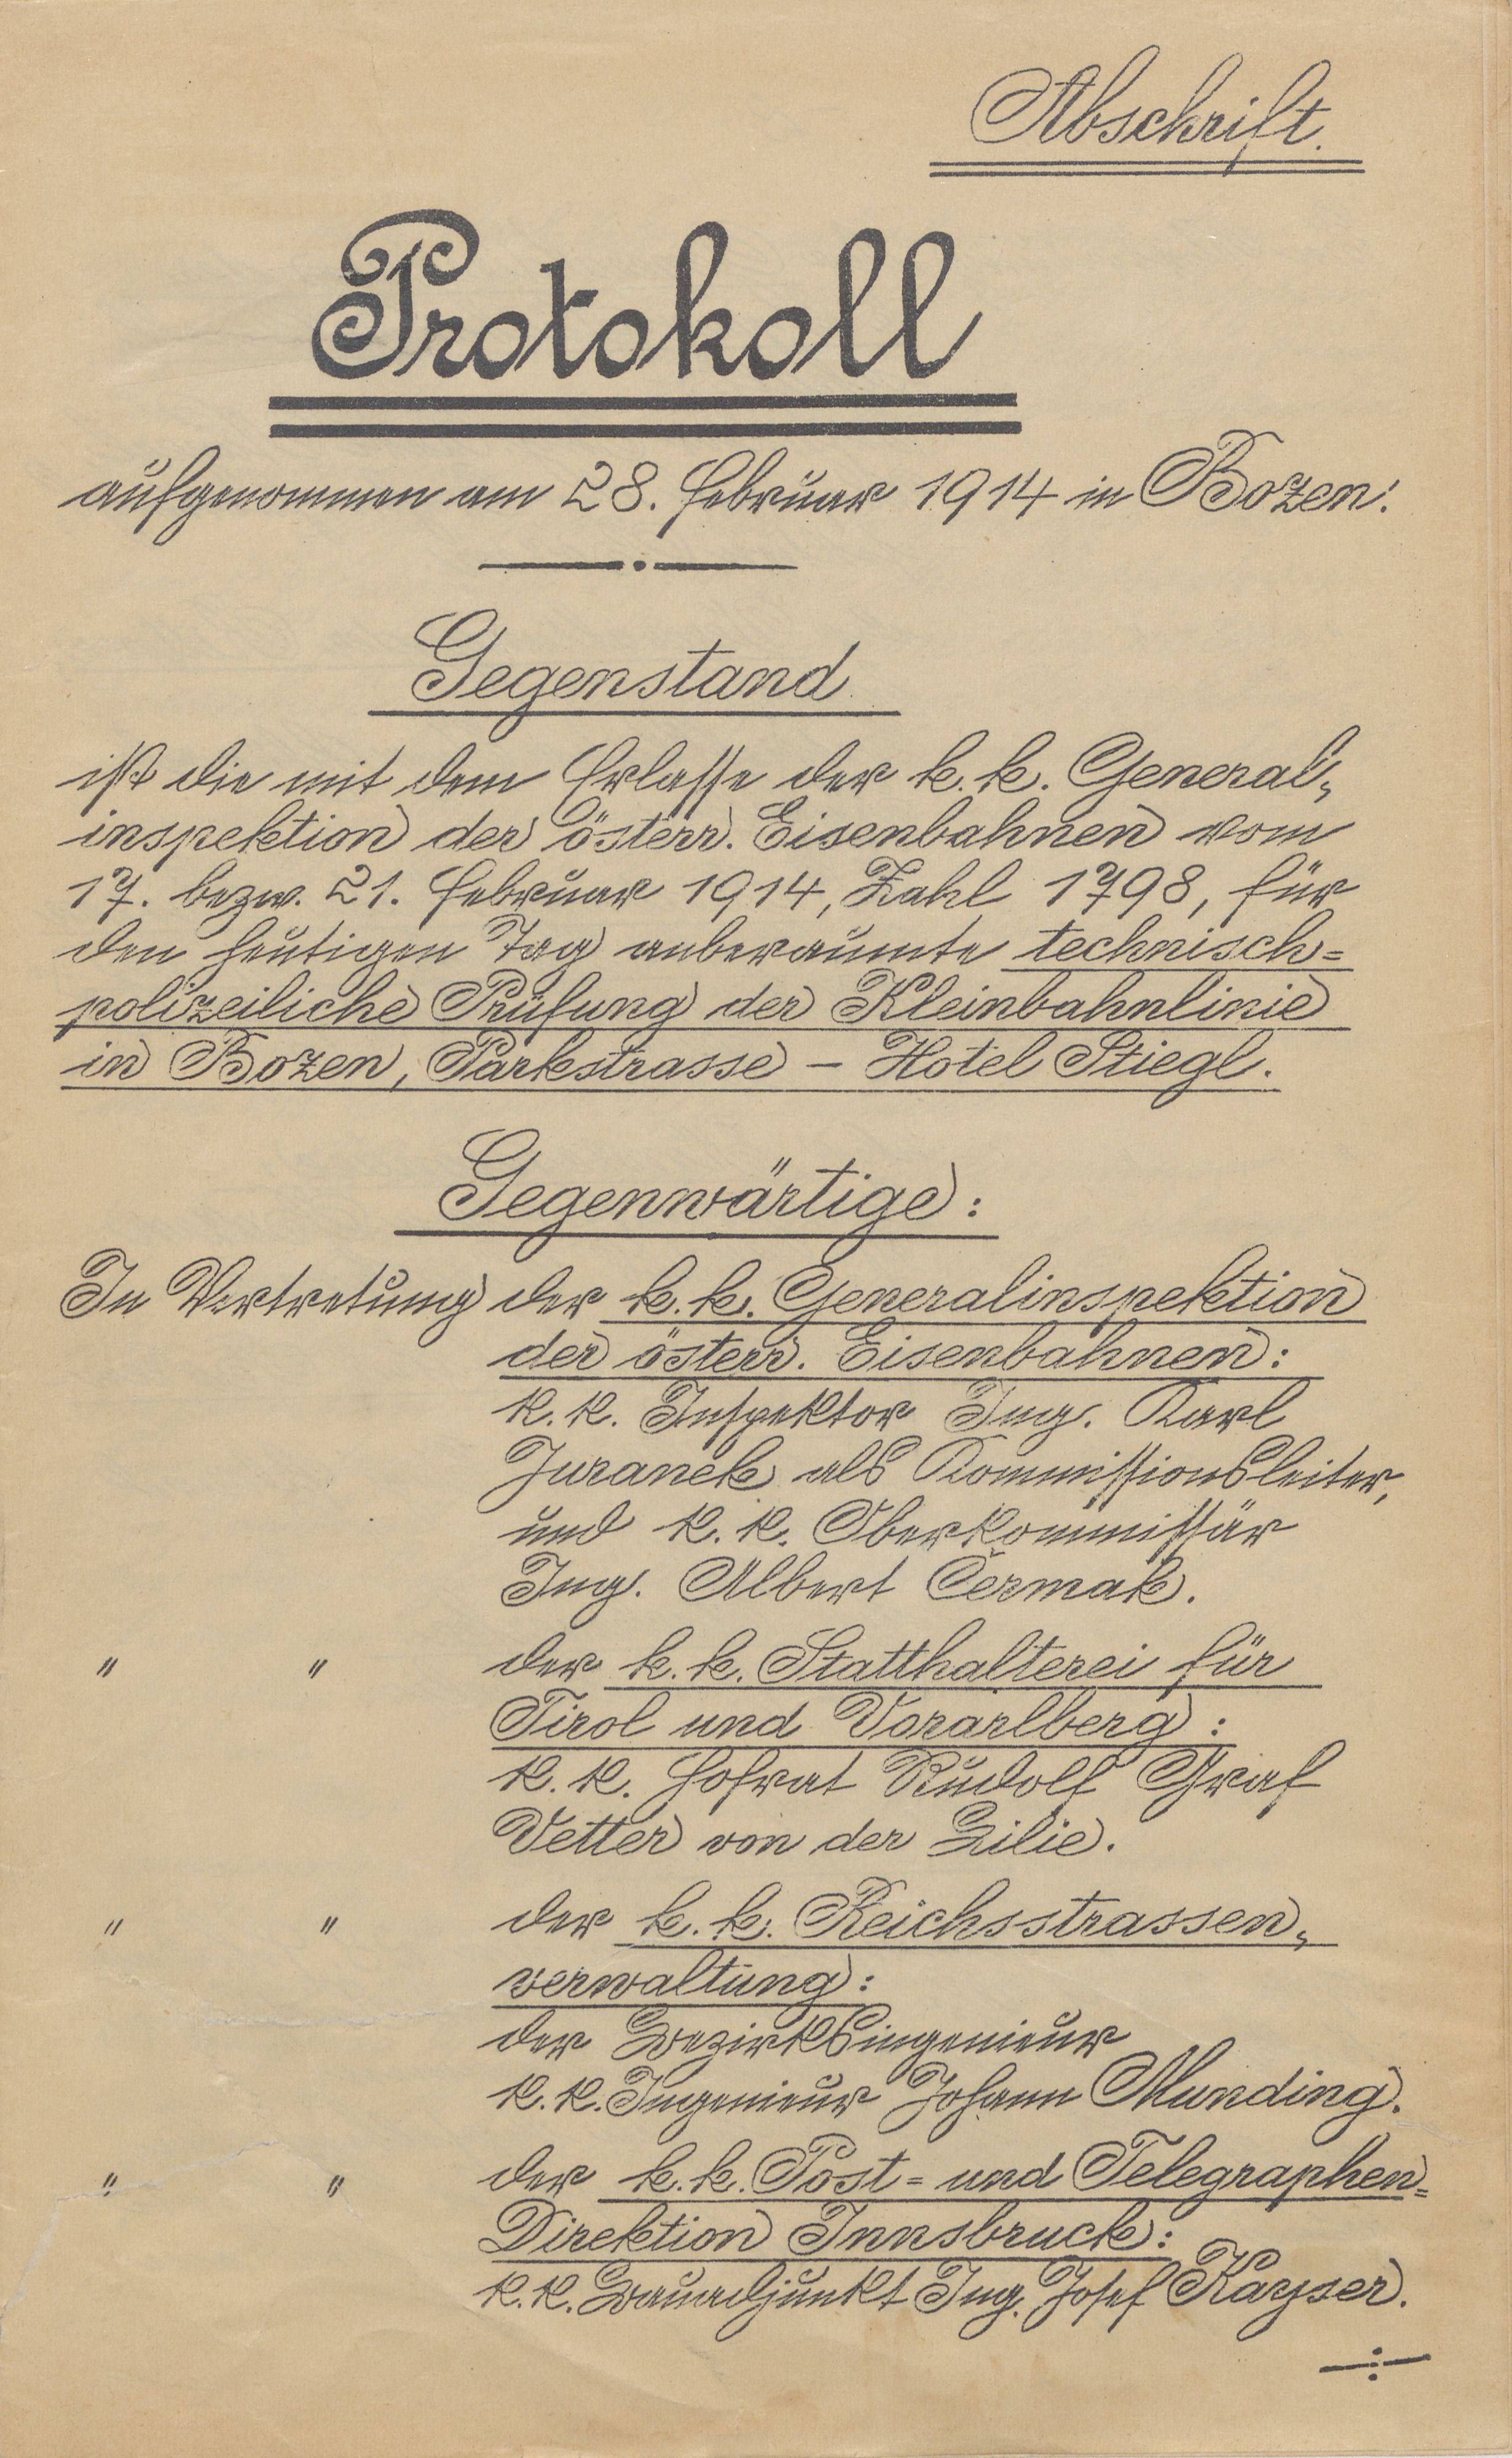 Abschrift.
Protokoll
aufgenommen am 28. Februar 1914 in Bozen.
Gegenstand
ist die mit dem Erlasse der k.k. General-
inspektion der österr. Eisenbahnen vom
17. bezw. 21. Februar 1914, Zahl 1798, für
den heutigen Tag anberaumte technisch=
polizeiliche Prüfung der Kleinbahnlinie
in Bozen, Parkstrasse – Hotel Stiegl.
Gegenwärtige:
In Vertretung der k.k. Generalinspektion
der österr. Eisenbahnen:
k.k. Inspektor Ing. Karl
Juranek als Kommissionsleiter,
und k.k. Oberkommissär
Ing. Albert Čermak.
" " der k.k. Statthalterei für
Tirol und Vorarlberg:
k.k. Hofrat Rudolf Graf
Vetter von der Lilie.
" " der k.k. Reichsstrassen-
verwaltung:
der Bezirksingenieur
k.k. Ingenieur Johann Munding.
" " der k.k. Post= und Telegraphen=
Direktion Innsbruck:
k.k. Bauadjunkt Ing. Josef Kayser.